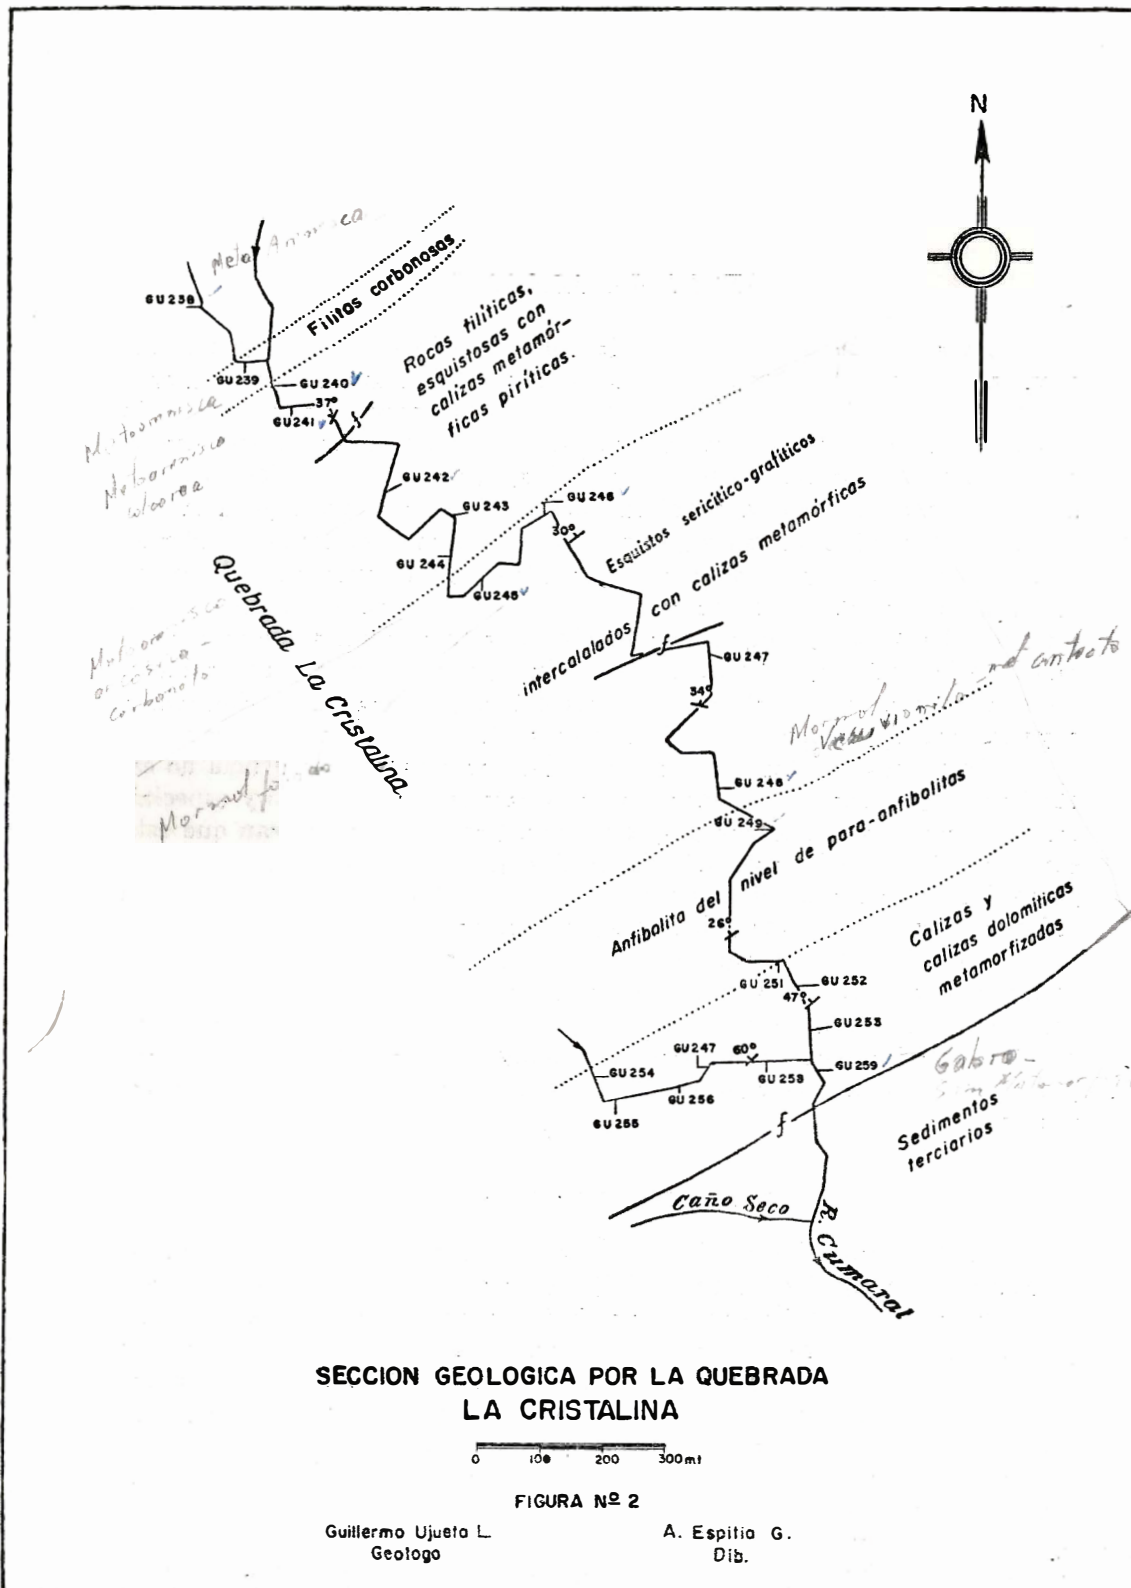 N
Meta
GU238
Filitas carbonosas
Rocas filíticas,
esquistosas con
calizas metamór-
ficas piríticas.
GU239
GU240
37º
GU241
f
Metaarenisca
GU242
GU243
GU246
30º
GU244
GU245
Esquistos sericítico-grafíticos
intercalalados con calizas metamórficas
Quebrada La Cristalina.
carbonato
f
GU247
34º
Marmol
GU248
GU249
Marmol
Anfibolita del nivel de para-anfibolitas
26º
Calizas y
calizas dolomíticas
metamorfizadas
GU251
GU252
47º
GU253
GU247
60º
GU254
GU258
GU259
Gabro -
GU256
GU255
f
Sedimentos
terciarios
Caño Seco
R. Cumaral
SECCION GEOLOGICA POR LA QUEBRADA
LA CRISTALINA
0 100 200 300mt
FIGURA Nº 2
Guillermo Ujueta L.
Geologo
A. Espitia G.
Dib.